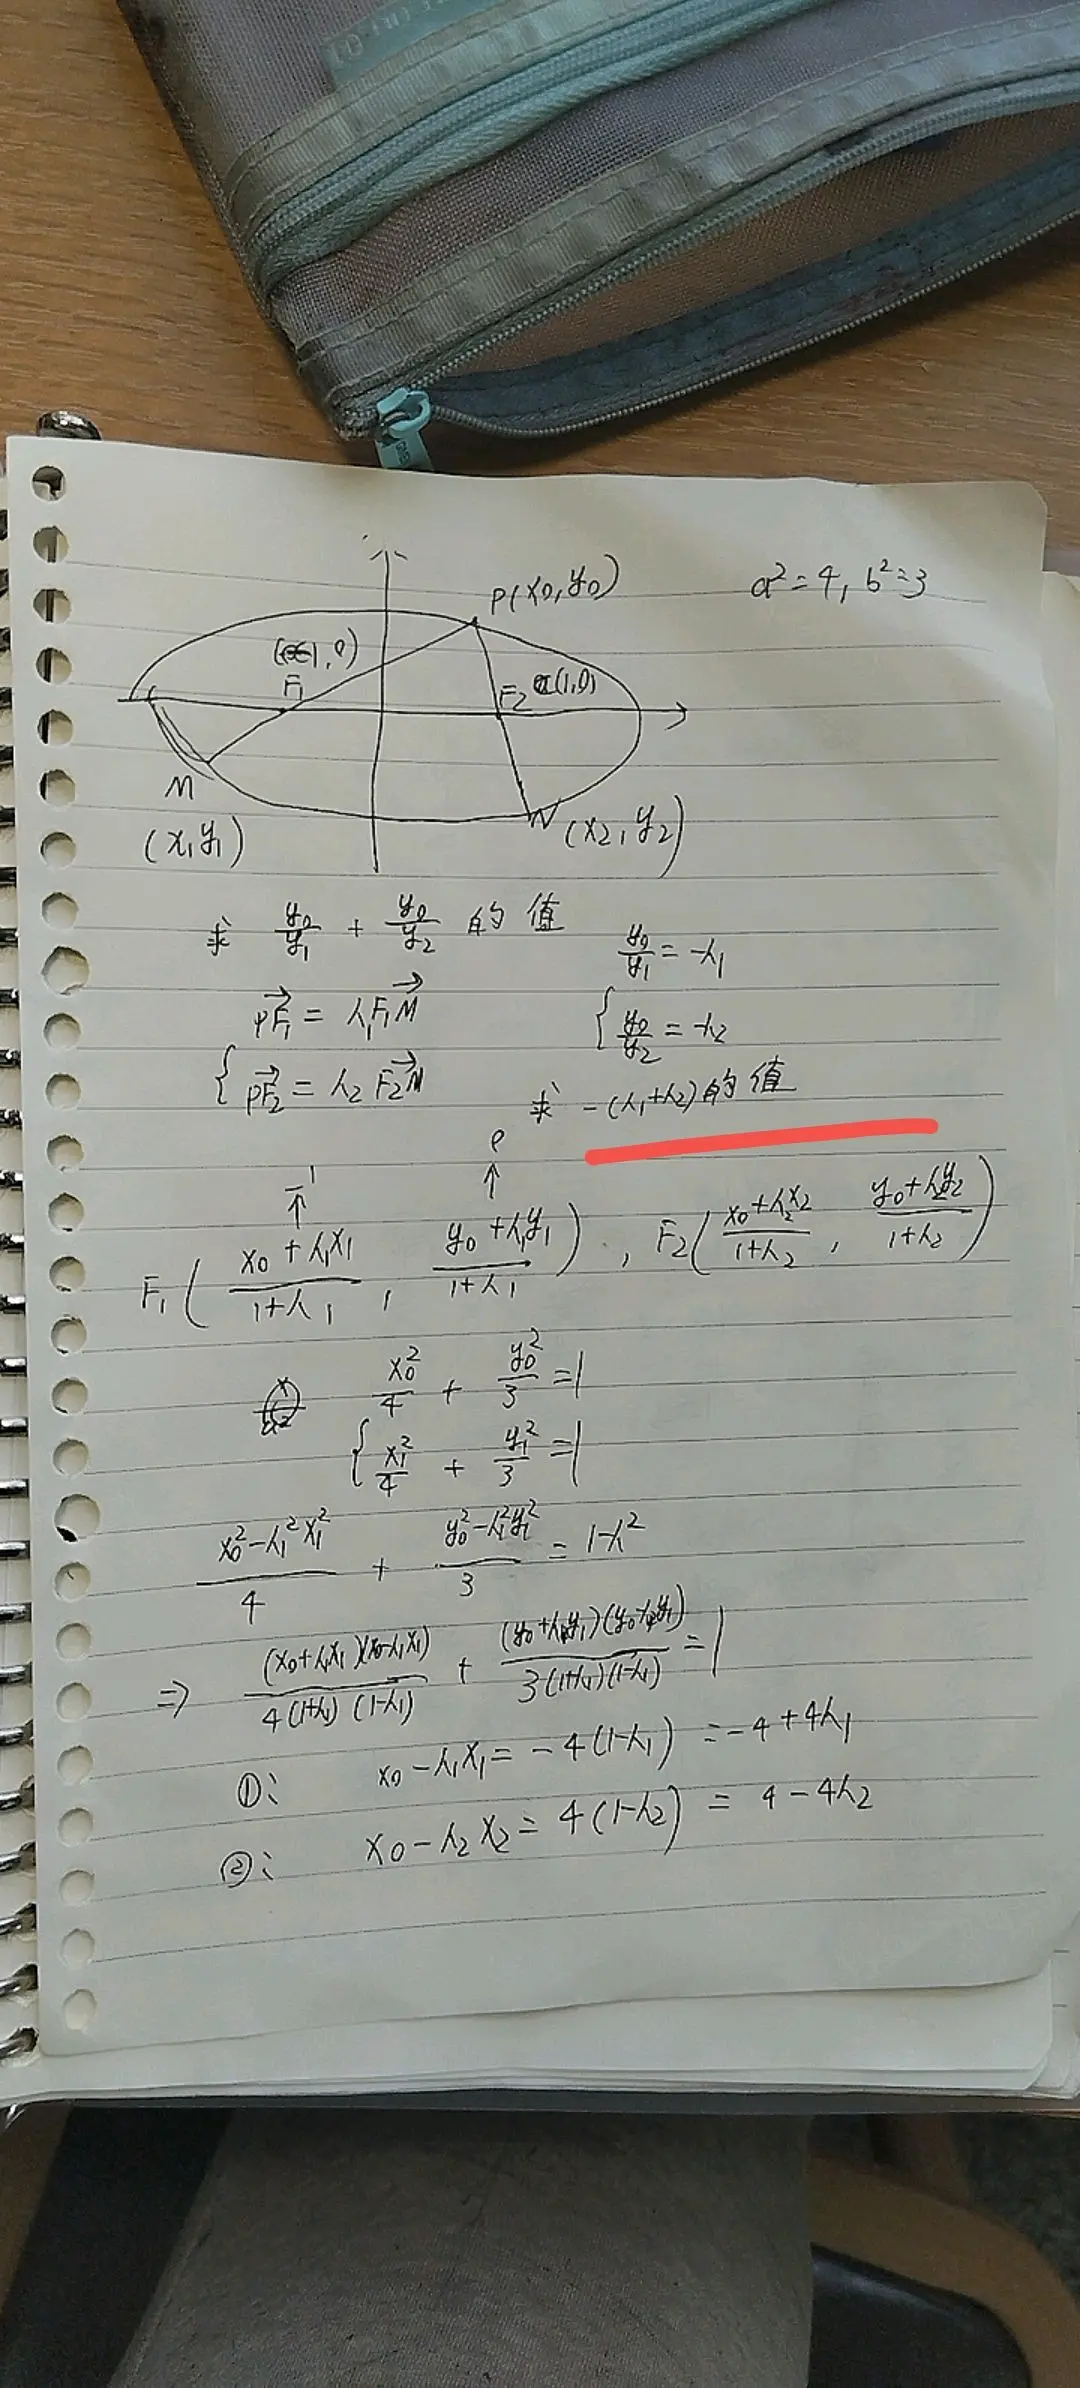 P(x₀,y₀)
a²=4, b²=3
(-1,0)
F₁
F₂ (1,0)
M
N (x₂,y₂)
(x₁y₁)
求 y₀/y₁ + y₀/y₂ 的值
y₀/y₁ = -λ₁
PF₁ = λ₁F₁M
{ y₀/y₂ = -λ₂
{ PF₂ = λ₂ F₂N
求 -(λ₁+λ₂)的值
-1
0
F₁( (x₀+λ₁x₁)/(1+λ₁) , (y₀+λ₁y₁)/(1+λ₁) ) , F₂( (x₀+λ₂x₂)/(1+λ₂) , (y₀+λ₂y₂)/(1+λ₂) )
x₀²/4 + y₀²/3 =1
{ x₁²/4 + y₁²/3 =1
(x₀²-λ₁²x₁²)/4 + (y₀²-λ₁²y₁²)/3 = 1-λ²
⇒ (x₀+λ₁x₁)(x₀-λ₁x₁)/4(1+λ₁)(1-λ₁) + (y₀+λ₁y₁)(y₀-λ₁y₁)/3(1+λ₁)(1-λ₁) =1
①: x₀-λ₁x₁= -4(1-λ₁) =-4+4λ₁
②: x₀-λ₂x₂= 4(1-λ₂) = 4-4λ₂